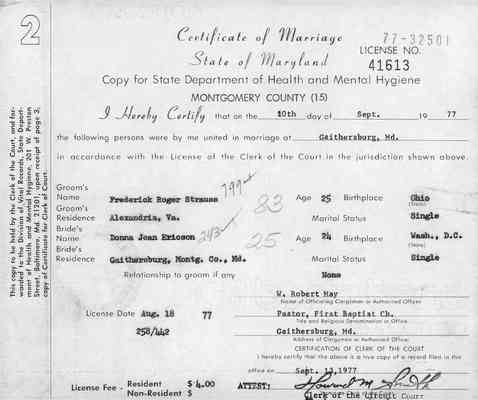 2
This copy to be held by the Clerk of the Court, and for-
warded to the Division of Vital Records, State Depart-
ment of Health and Mental Hygiene, 201 W. Preston
Street, Baltimore, Md. 21201; upon receipt of page 3,
copy of Certificate for Clerk of Court.
Certificate of Marriage
77-32501
State of Maryland
LICENSE NO.
41613
Copy for State Department of Health and Mental Hygiene
MONTGOMERY COUNTY (15)
I Hereby Certify that on the 10th day of Sept. 19 77
the following persons were by me united in marriage at Gaithersburg, Md.
in accordance with the License of the Clerk of the Court in the jurisdiction shown above.
Groom's
Name Frederick Roger Strauss 83 Age 25 Birthplace Ohio
(State)
Groom's
Residence Alexandria, Va. Marital Status Single
Bride's
Name Donna Jean Ericson 25 Age 24 Birthplace Wash., D.C.
(State)
Bride's
Residence Gaithersburg, Montg. Co., Md. Marital Status Single
Relationship to groom if any None
W. Robert May
Name of Officiating Clergyman or Authorized Officer
License Date Aug. 18 77 Pastor, First Baptist Ch.
Title and Religious Denomination or Office
258/442 Gaithersburg, Md.
Address of Clergyman or Authorized Officer
CERTIFICATION OF CLERK OF THE COURT
I hereby certify that the above is a true copy of a record filed in this
office on Sept. 13, 1977
License Fee - Resident $ 4.00 ATTEST: Howard M. Smith
Non-Resident $ Clerk of the Circuit COURT